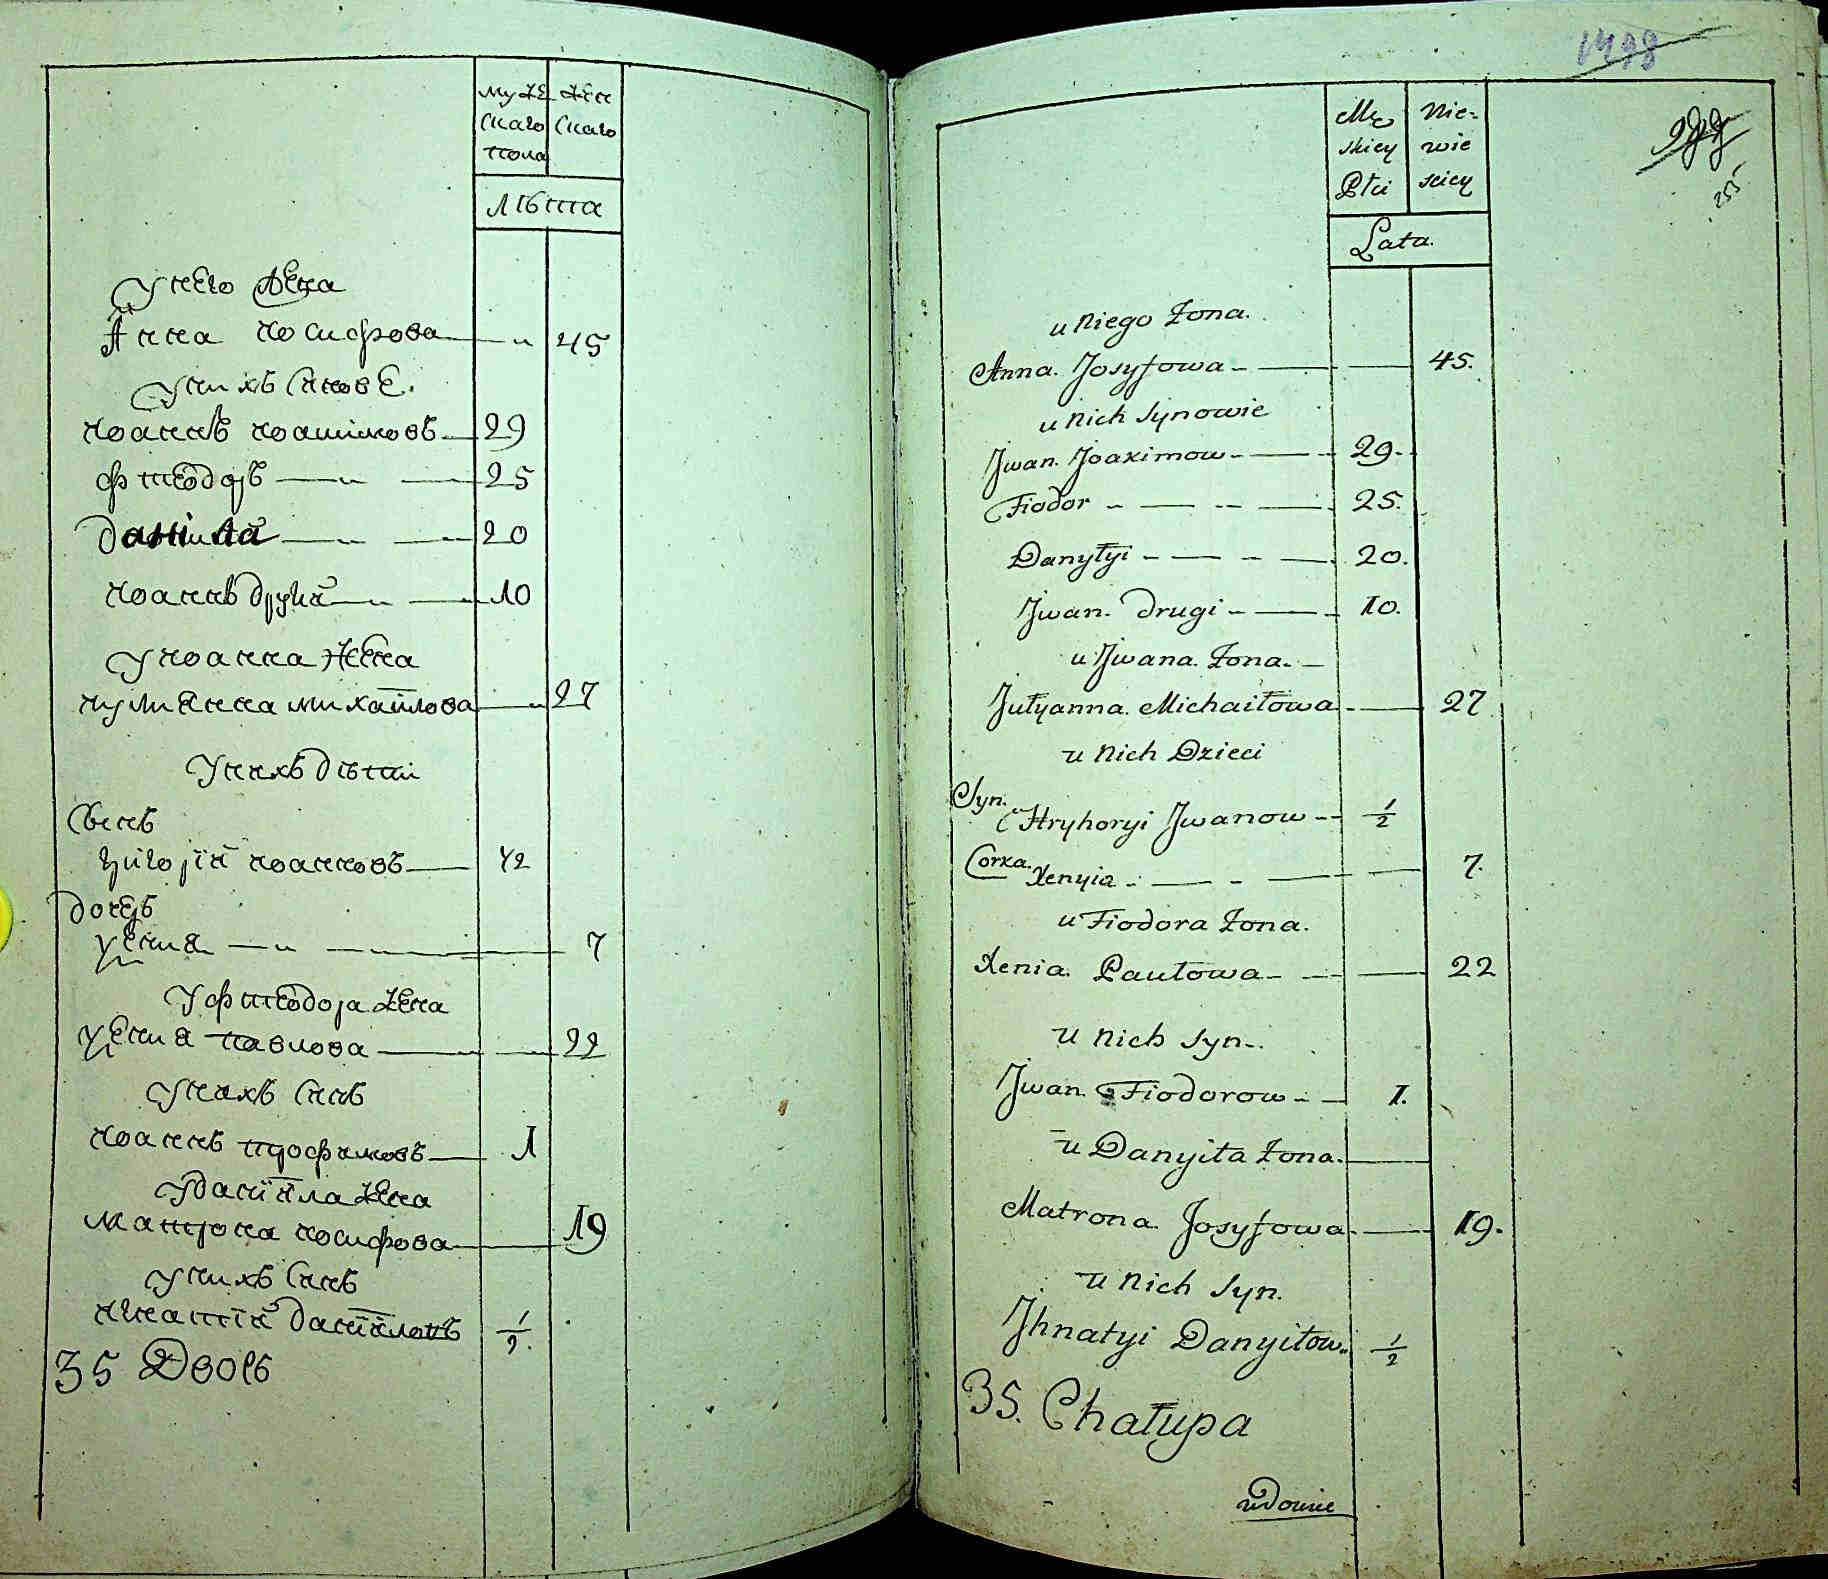 муже
скаго
пола
жен
скаго
лѣта
у него жена
Анна иосифова — „ 45
у нихъ синове.
иоаннъ иоакімовъ — 29
фтеодоръ — „ — 25
даніила — „ — 20
иоаннъ други — „ — 10
у иоанна жена
иулианна михаилова — „ 27
у нихъ дѣти
Сынъ
григорій иоанновъ — ½
дочеръ
ѯения — „ — 7
у фтеодора жена
ѯения павлова — 22
у нихъ синъ
иоаннъ трофимовъ — 1
у даніила жена
матрона иосифова — 19
у нихъ синъ
игнатій даніиловъ ½
35 Дворъ
1498
277
255
Mę
skiey
Płci
Nie-
wie
sciey
Lata.
u niego Żona.
Anna Josyfowa — 45.
u nich synowie
Jwan Joakimow — 29.
Fiodor — 25.
Danyłyi — 20.
Jwan drugi — 10.
u Jwana Żona.
Jułyanna Michaiłowa — 27
u nich Dzieci
Syn.
Hryhoryi Jwanow — ½
Corka.
Xenyia — 7.
u Fiodora Żona.
Xenia Pawłowa — 22
u nich syn.
Jwan Fiodorow — 1.
u Danyiła Żona.
Matrona Josyfowa — 19.
u nich syn.
Jhnatyi Danyiłow. ½
35. Chałupa
wdowie